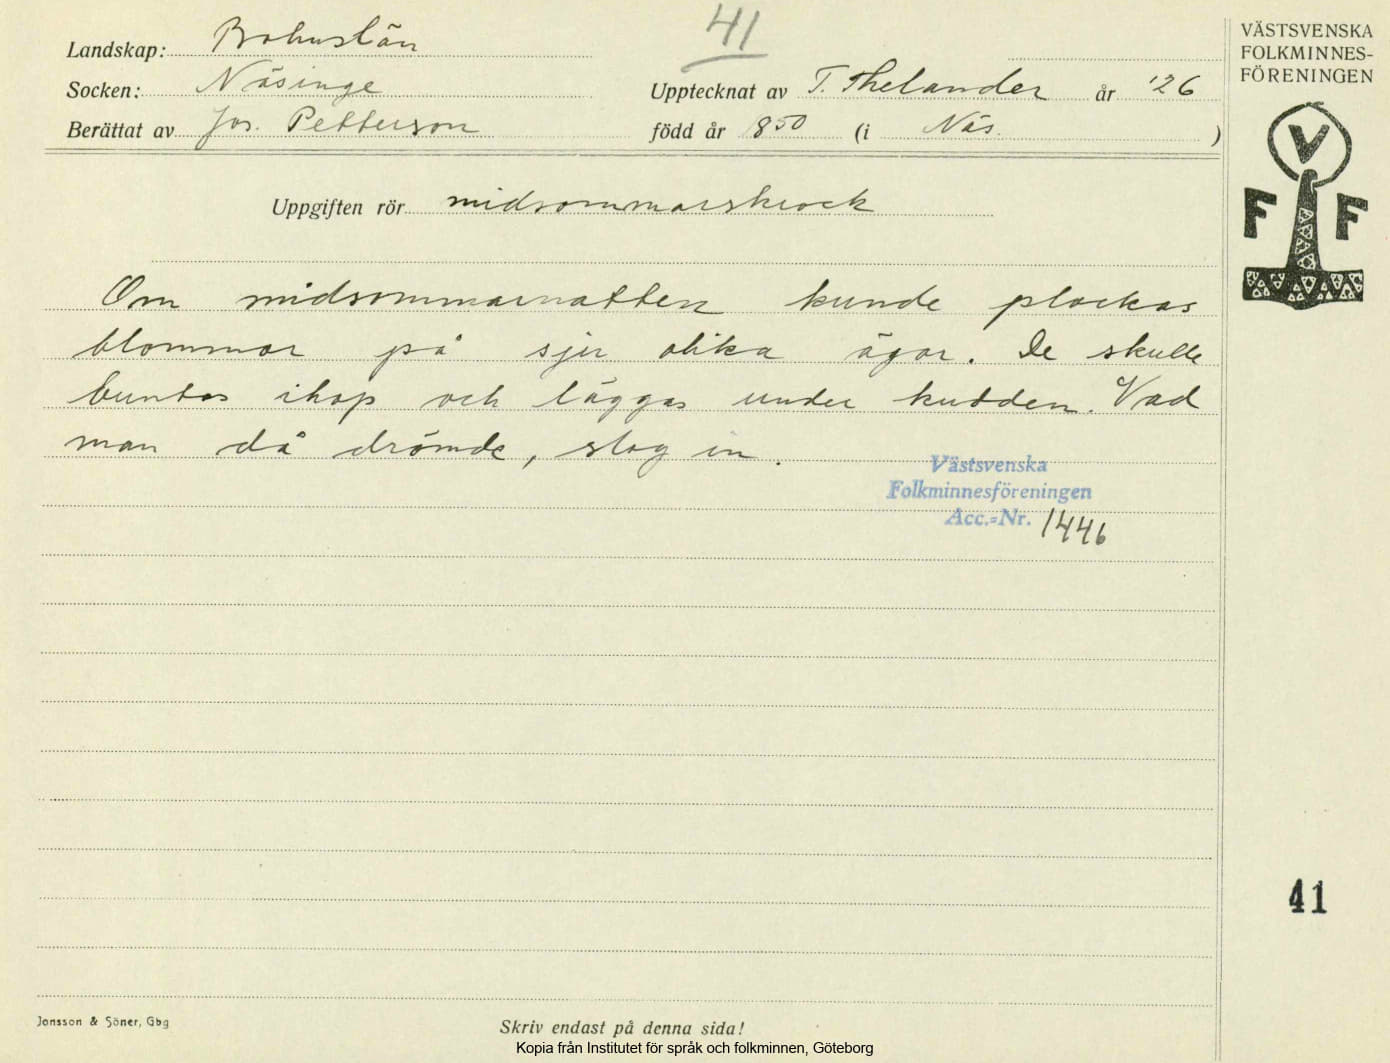 41
Landskap: Bohuslän
Socken: Näsinge
Upptecknat av T. Thelander år '26
Berättat av Jos. Petterson
född år 1850 (i Näs. )
Uppgiften rör midsommarskrock
Om midsommarnatten kunde plockas
blommor på sju olika ägor. De skulle
buntas ihop och läggas under kudden. Vad
man då drömde, slog in.
Västsvenska
Folkminnesföreningen
Acc.=Nr. 1446
VÄSTSVENSKA
FOLKMINNES-
FÖRENINGEN
V
F F
41
Jonsson & Söner, Gbg
Skriv endast på denna sida!
Kopia från Institutet för språk och folkminnen, Göteborg